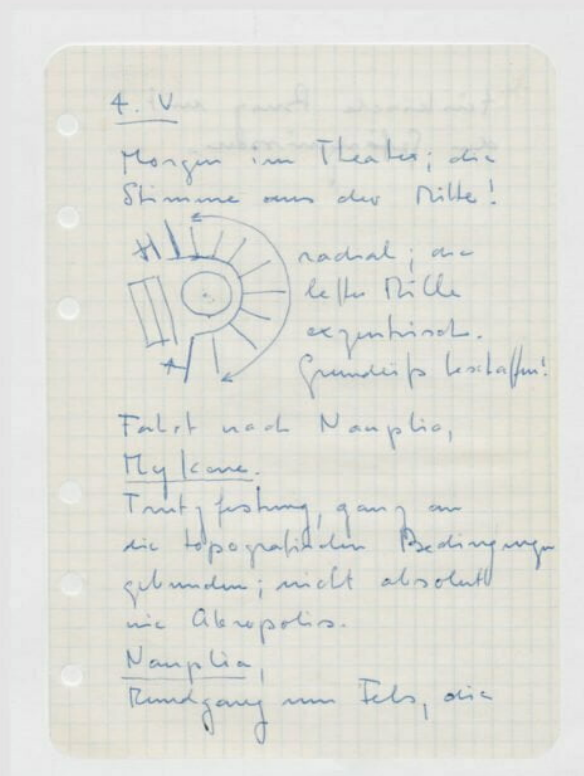 4. V
Morgen im Theater; die
Stimme aus der Mitte!
radial; die
Mitte
exzentrisch.
Grundriß beschaffen!
Fahrt nach Nauplia,
Mykene.
Trutzfestung, ganz an
die topografischen Bedingungen
gebunden; nicht absolut
wie Akropolis.
Nauplia,
Rundgang um Fels, die